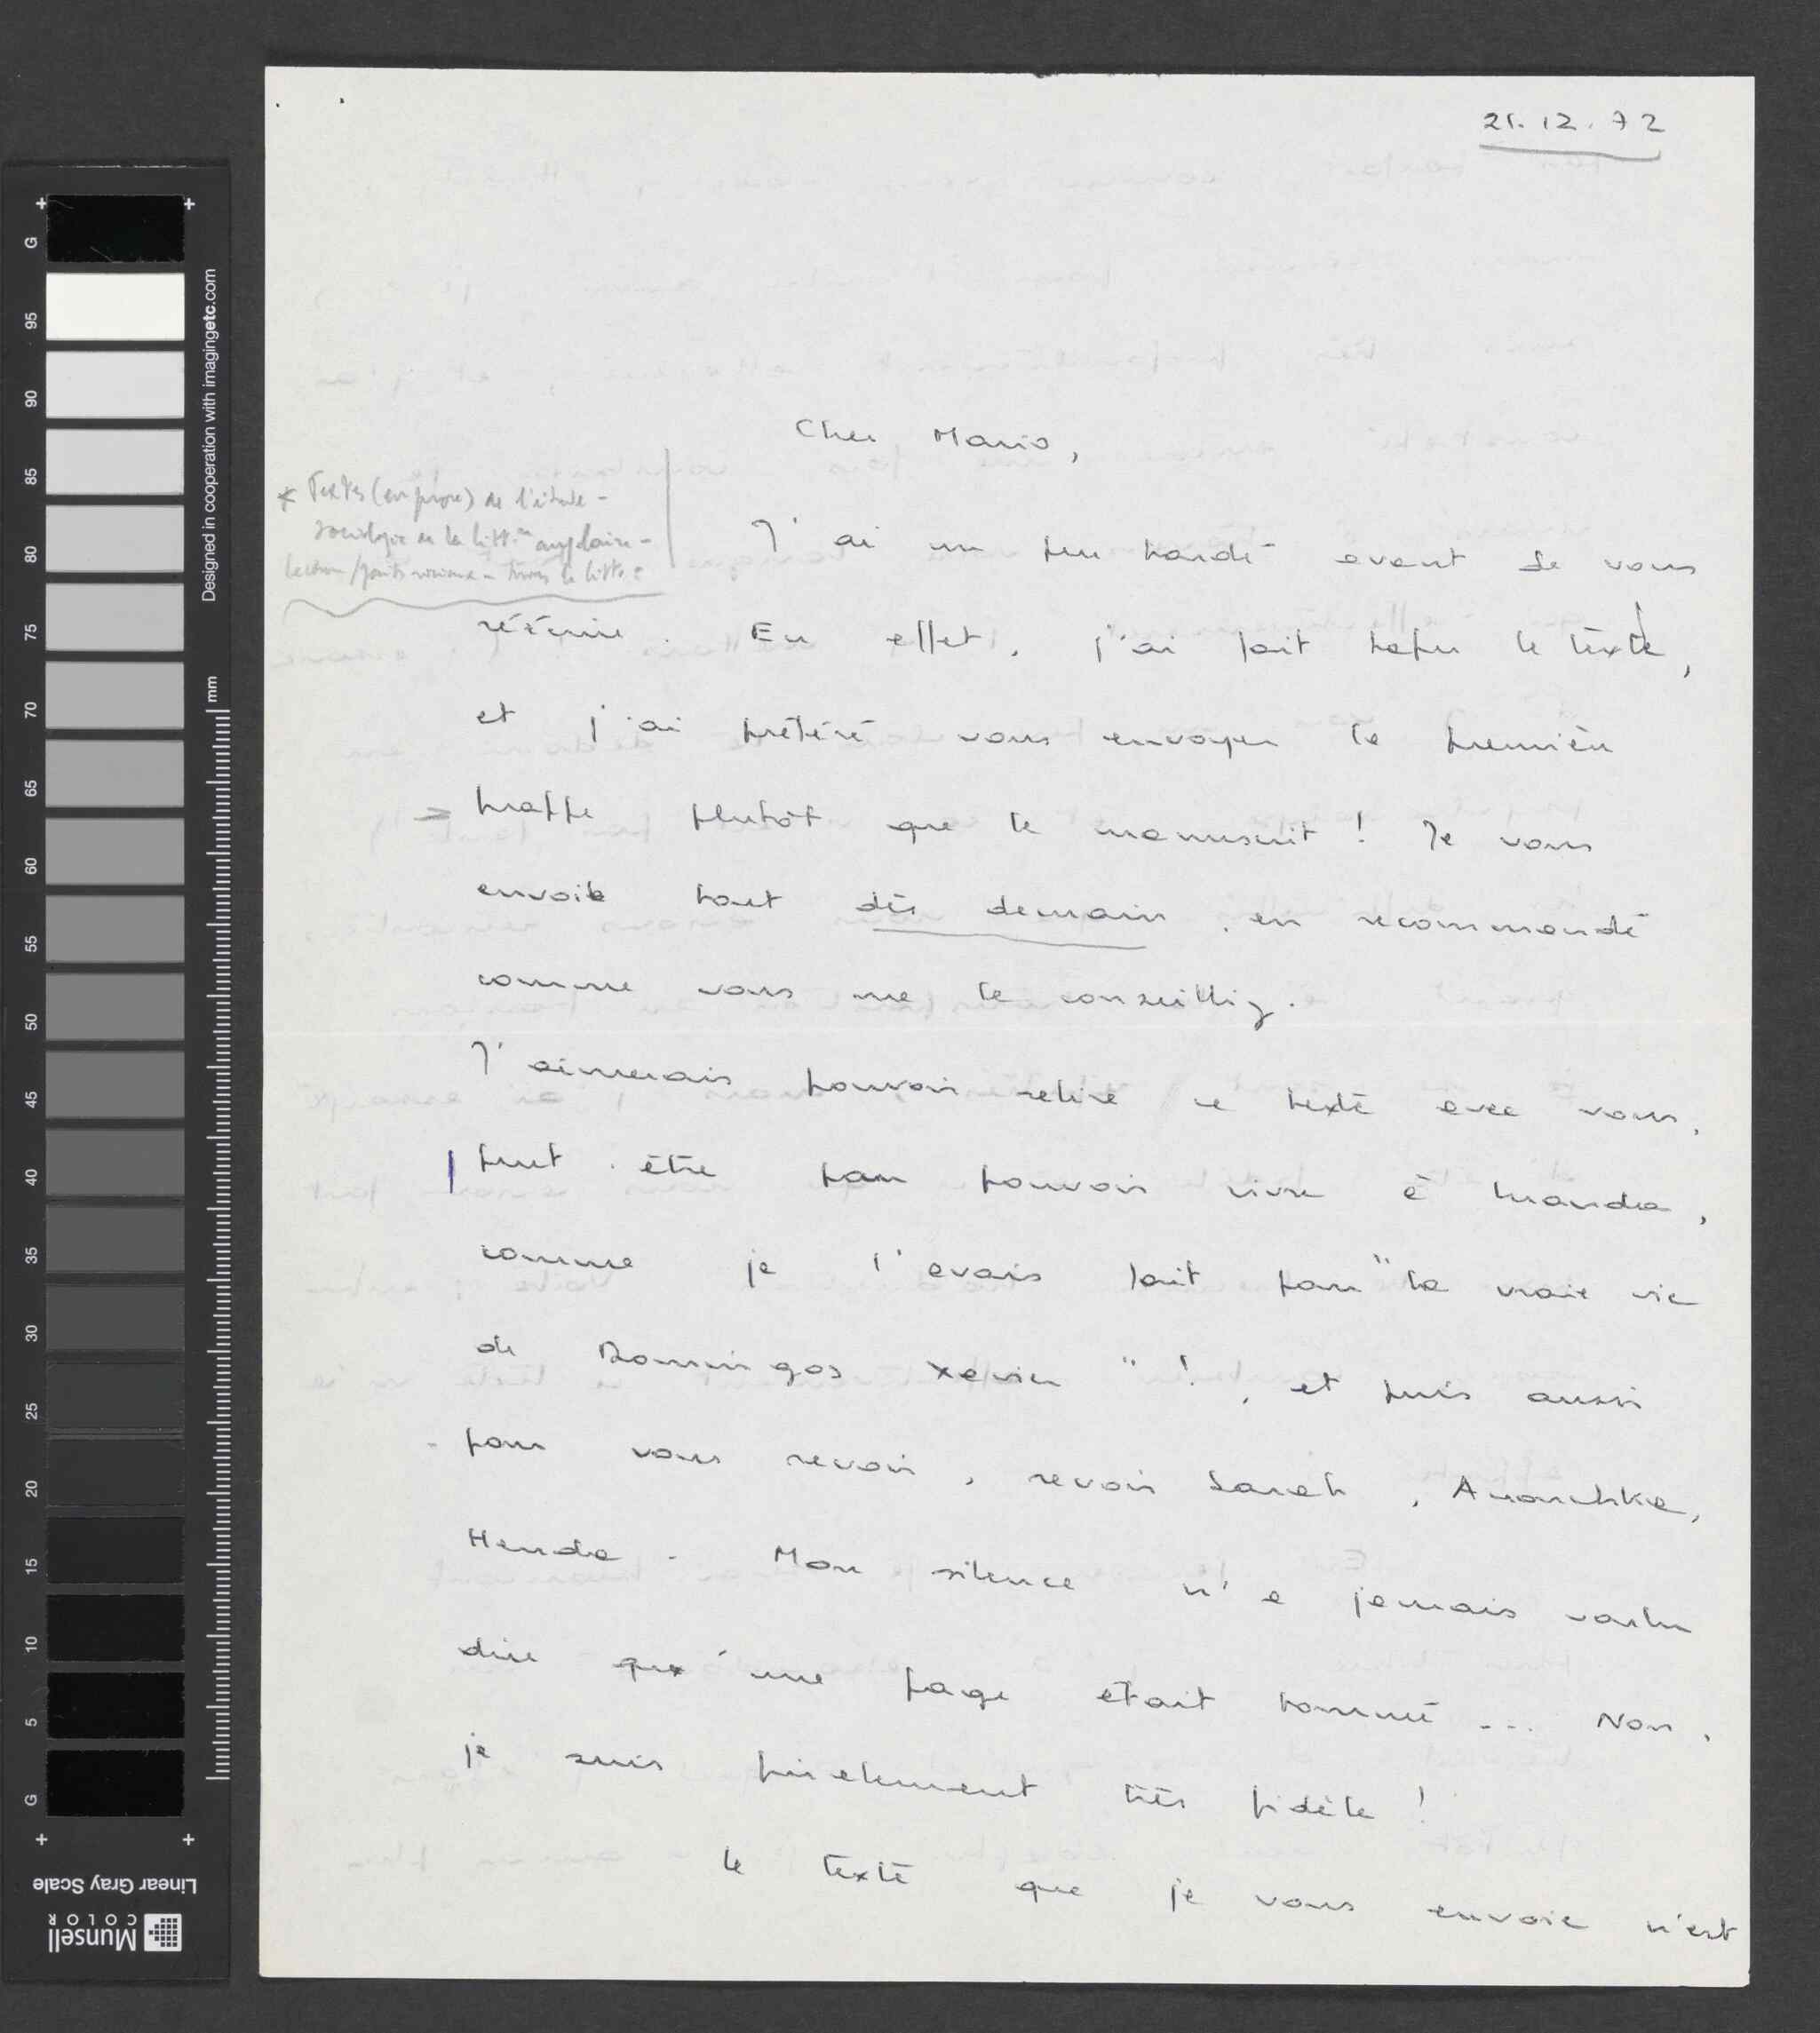 21.12.72
Cher Mario,
* Textes (en prose) de l'étude -
sociologie de la litt.re angolaise -
J'ai un peu tardé avant de vous
réécrire. En effet, j'ai fait taper le texte,
et j'ai préféré vous envoyer la première
frappe plutôt que le manuscrit ! Je vous
envoie tout dès demain, en recommandé
comme vous me le conseilliez.
J'aimerais pouvoir relire ce texte avec vous,
peut-être pour pouvoir vivre à Luanda,
comme je l'avais fait pour "la vraie vie
de Domingos Xavier" !, et puis aussi
pour vous revoir, revoir Sarah, Anouchka,
Henda. Mon silence n'a jamais voulu
dire qu'une page était tournée ... Non,
je suis finalement très fidèle !
Le texte que je vous envoie n'est
G 95 90 85 80 75 70 65 60 55 50 45 40 35 30 25 20 15 10 5 G
Designed in cooperation with imagingetc.com
mm
Linear Gray Scale
Munsell
COLOR